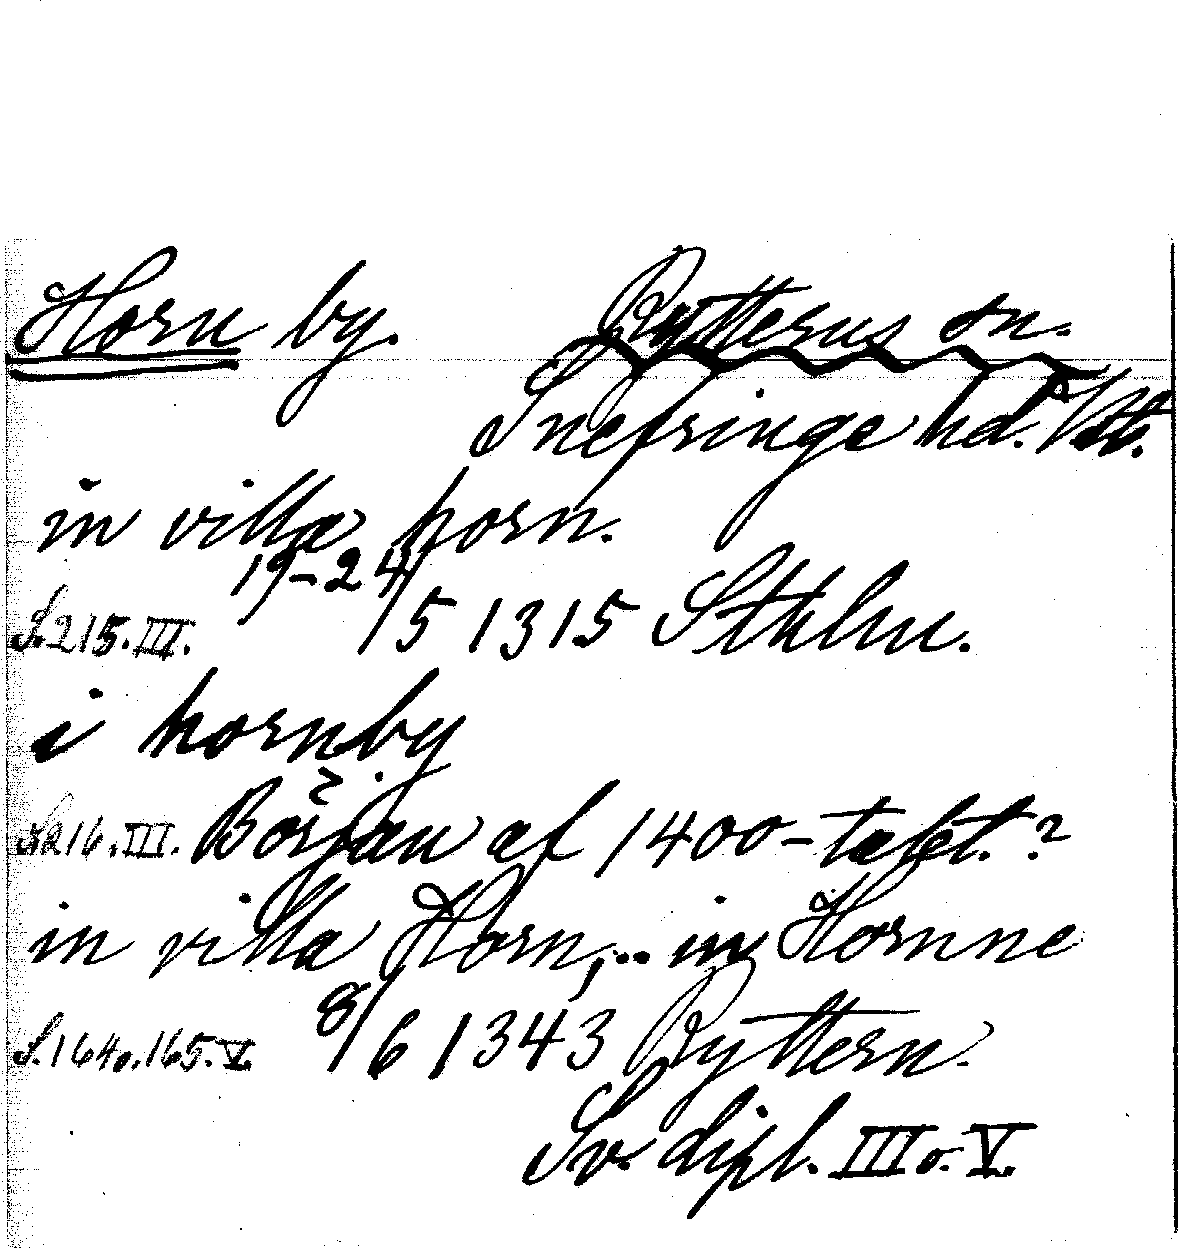 Horn by. Rytterns sn.
Snefringe hd. Vstm.
in villa horn.
S. 215. III. 19-24/5 1315 Sthlm.
i hornby
S. 216. III. Början af 1400-talet.?
in villa Horn, ... in Hornne
S. 164 o. 165. V. 8/6 1343 Ryttern.
Sv. dipl. III o. V.